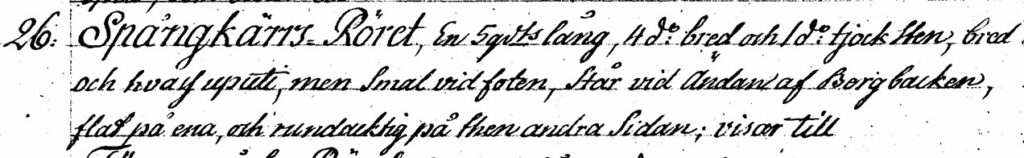 26: Spångkärrs-Röret, En 5 qvts lång, 4 do bred och 1 do tjock sten, bred
och hvass uputi, men Smal vid foten, står vid Ändan af Borgbacken,
flat på ena, och rundacktig på then andra Sidan; visar till